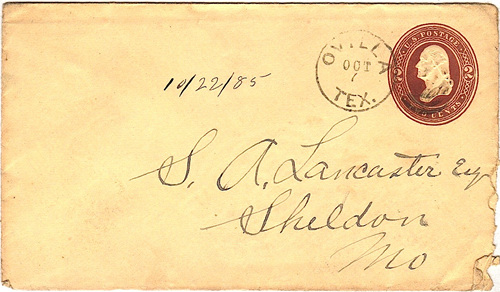 U.S. POSTAGE
2 2
TWO CENTS
OVILLA
OCT
7
TEX.
10/22/85
S. A. Lancaster Esq
Sheldon
Mo